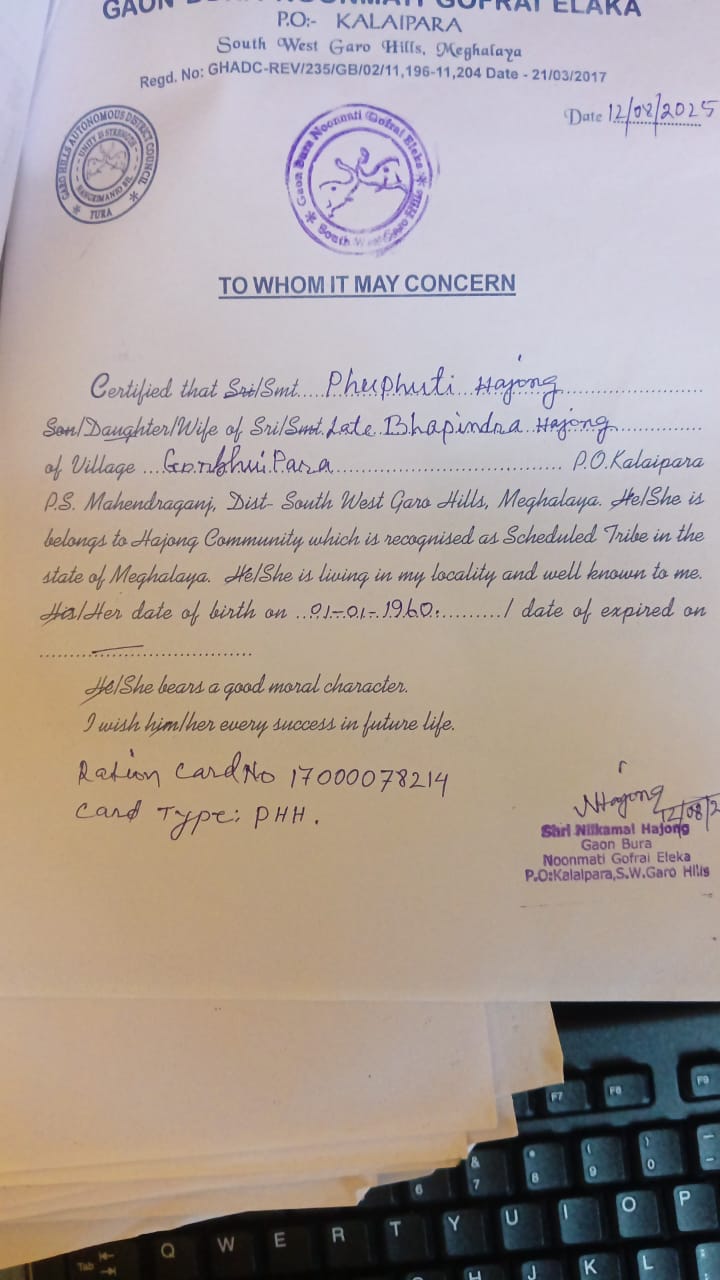 GAON BURA NOONMATI GOFRAI ELAKA
P.O:- KALAIPARA
South West Garo Hills, Meghalaya
Regd. No: GHADC-REV/235/GB/02/11,196-11,204 Date - 21/03/2017
Date 12/08/2025
GARO HILLS AUTONOMOUS DISTRICT COUNCIL
UNITY IS STRENGTH
TURA
Gaon Bura Noonmati Gofrai Eleka
South West Garo Hills
TO WHOM IT MAY CONCERN
Certified that Sri/Smt....Phuphuti Hajong
Son/Daughter/Wife of Sri/Smt. Late Bhapindra Hajong
of Village ... Para ... P.O.Kalaipara
P.S. Mahendraganj, Dist- South West Garo Hills, Meghalaya. He/She is
belongs to Hajong Community which is recognised as Scheduled Tribe in the
state of Meghalaya. He/She is living in my locality and well known to me.
His/Her date of birth on ...01-01-1960........../ date of expired on
He/She bears a good moral character.
I wish him/her every success in future life.
Ration Card No 17000078214
Card Type: PHH.
NHajong
12/08/2
Shri Nilkamal Hajong
Gaon Bura
Noonmati Gofrai Eleka
P.O:Kalaipara,S.W.Garo Hills
F7 F8 F9
6 & 7 * 8 ( 9 ) 0
Tab Q W E R T Y U I O P
H J K L